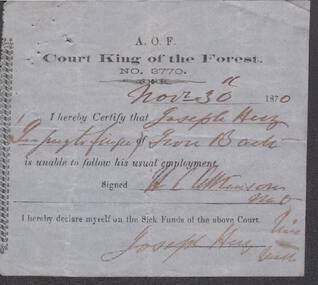 A. O. F.
Court King of the Forest.
NO. 3770.
Novr 30th 1870
I hereby Certify that Joseph Huz
of Iron Bark
is unable to follow his usual employment.
Signed H L Atkinson
I hereby declare myself on the Sick Funds of the above Court.
Joseph Huz